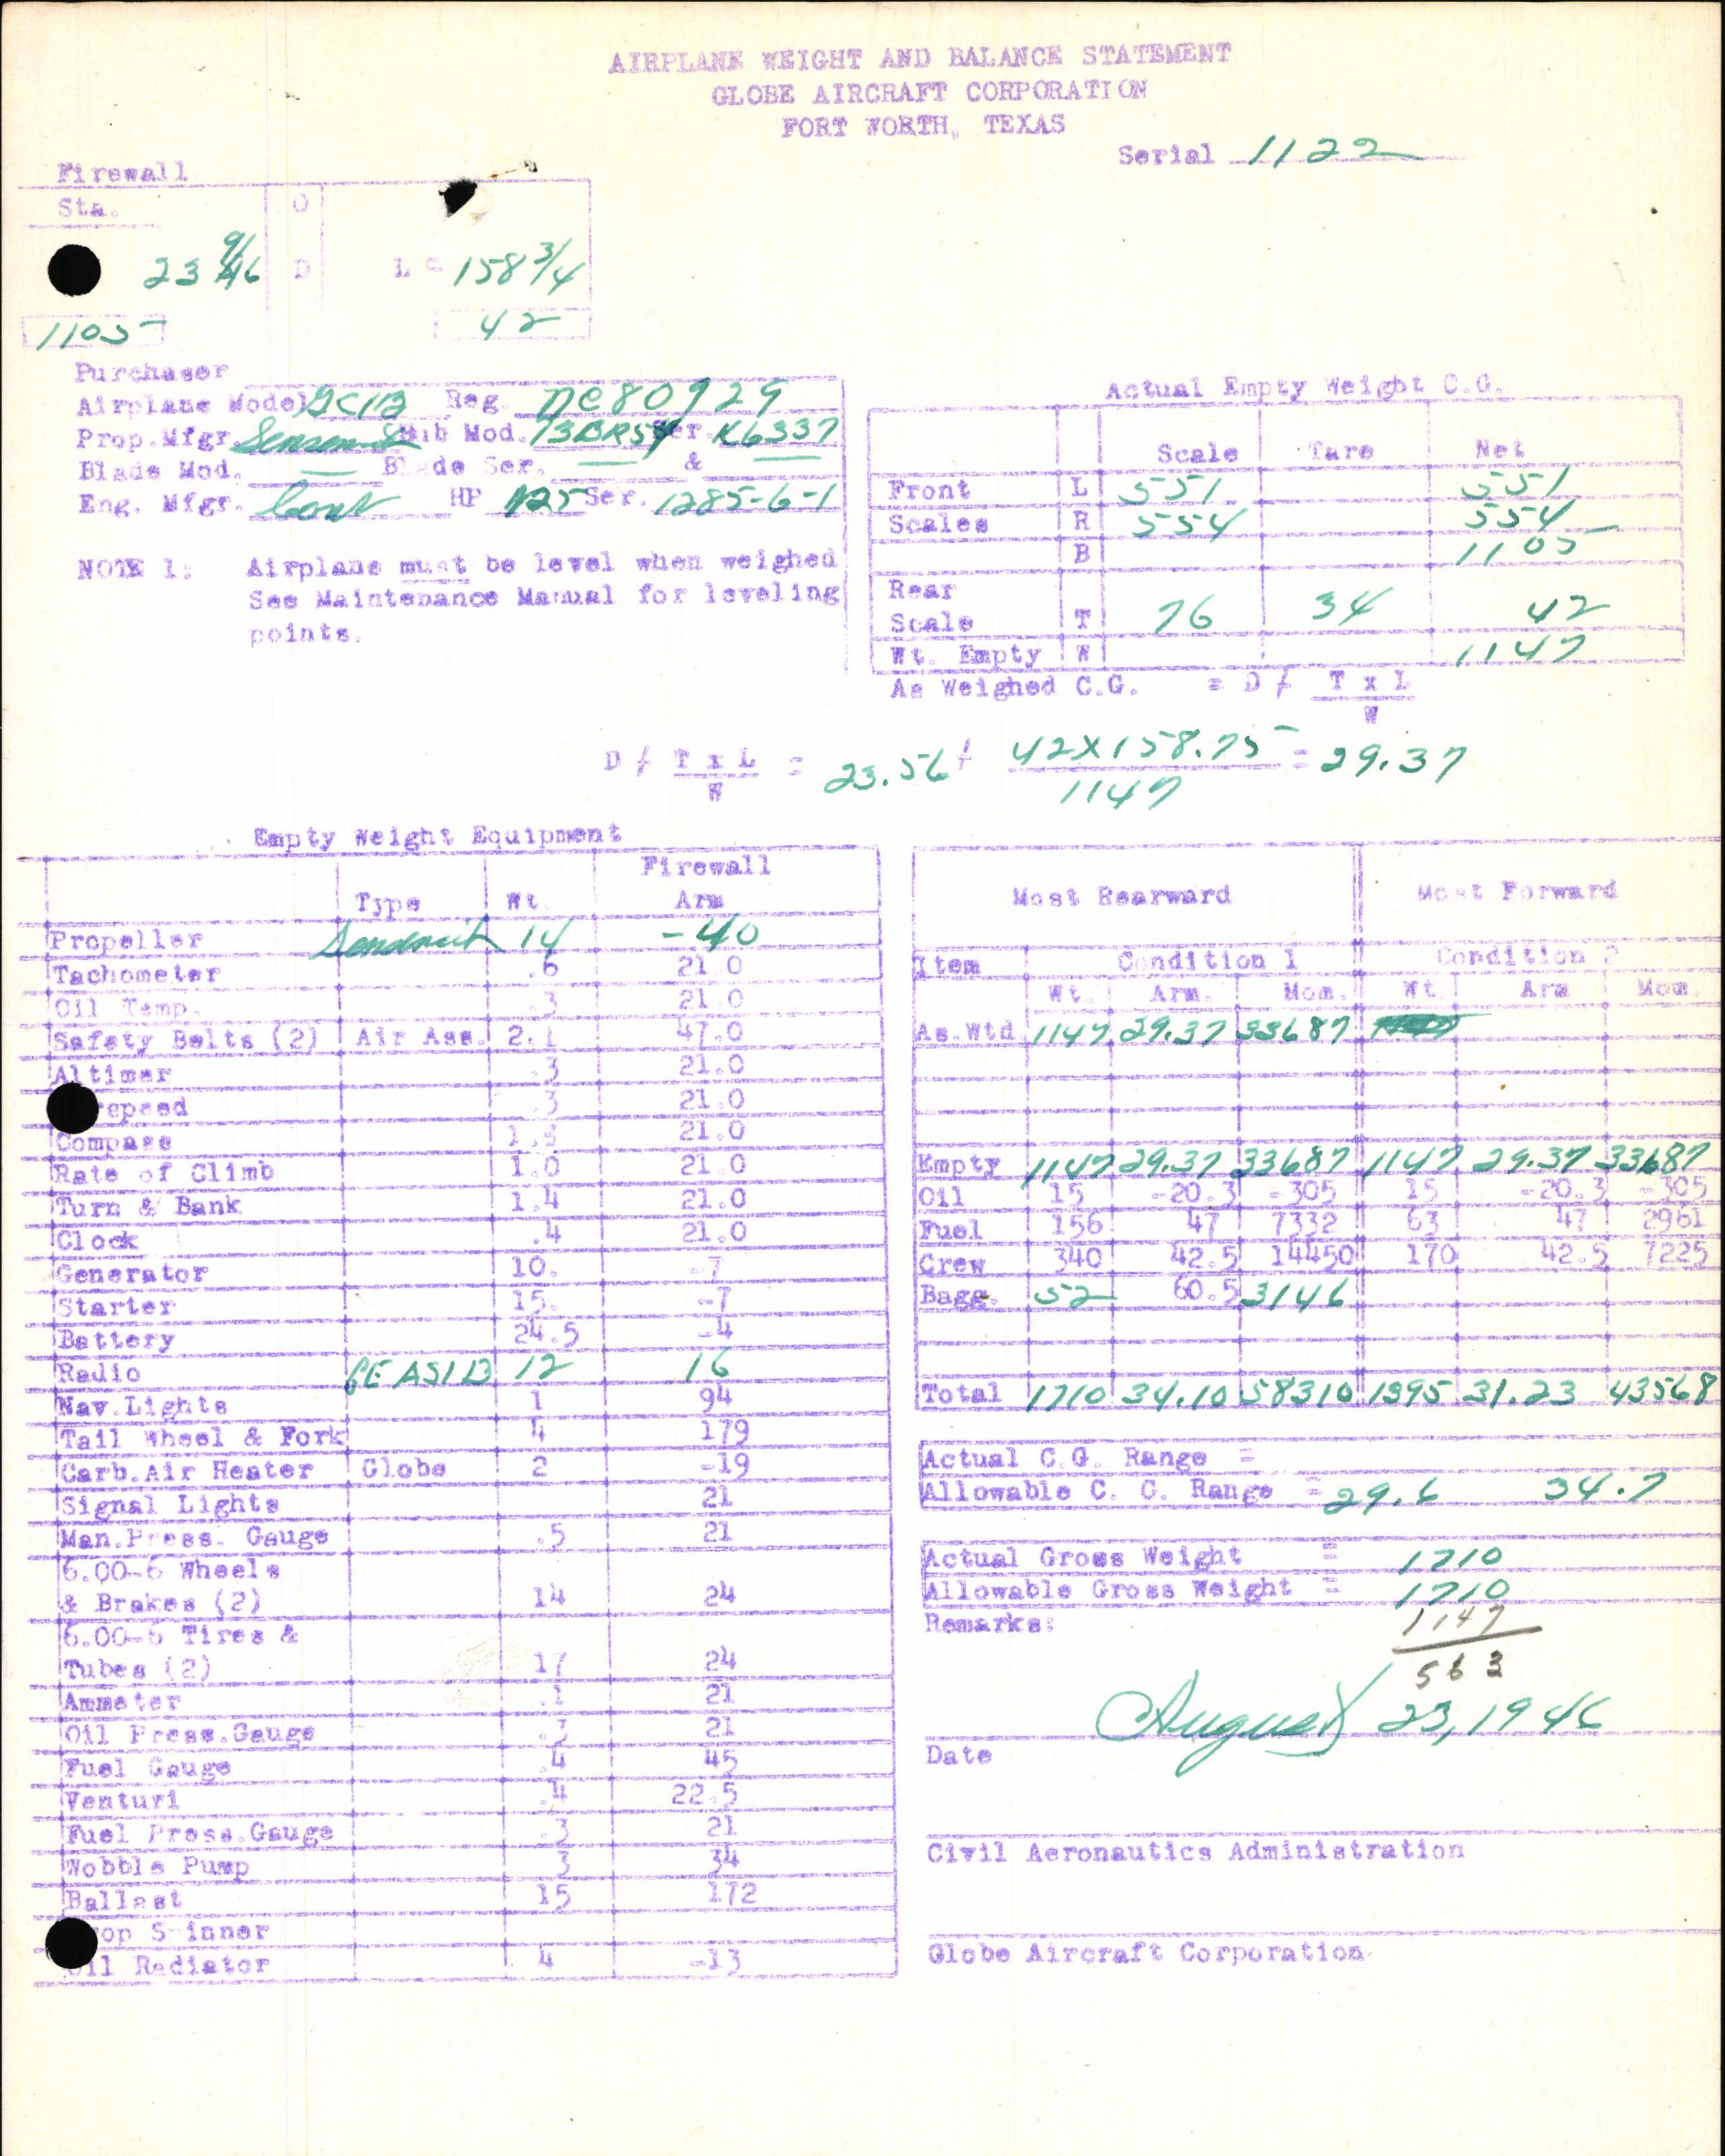 AIRPLANE WEIGHT AND BALANCE STATEMENT
GLOBE AIRCRAFT CORPORATION
FORT WORTH, TEXAS
Serial 1122
Firewall
Sta. O
23 9/16 D L = 158 3/4
1105 42
Purchaser
Airplane Model GC1B Reg. NC80929
Prop.Mfgr. Hub Mod. 73BR54 Ser. K6337
Blade Mod. — Blade Ser. — & —
Eng. Mfgr. Cont HP 125 Ser. 1285-6-1
NOTE 1: Airplane must be level when weighed
See Maintenance Manual for leveling
points.
Actual Empty Weight C.G.
Scale Tare Net
Front L 551 551
Scales R 554 554
B 1105
Rear
Scale T 76 34 42
Wt. Empty W 1147
As Weighed C.G. = D / T x L
W
D / T x L = 23.56 + 42X158.75 = 29.37
W 1147
Empty Weight Equipment
Firewall
Type Wt. Arm
Propeller Sensenich 14 -40
Tachometer .6 21.0
Oil Temp. .3 21.0
Safety Belts (2) Air Ass. 2.1 47.0
Altimer .3 21.0
repeed .3 21.0
Compass 1.3 21.0
Rate of Climb 1.0 21.0
Turn & Bank 1.4 21.0
Clock .4 21.0
Generator 10. -7
Starter 15. -7
Battery 24.5 -4
Radio GE AS1B 12 16
Nav.Lights 1 94
Tail Wheel & Fork 4 179
Carb.Air Heater Globe 2 -19
Signal Lights 21
Man.Press. Gauge .5 21
6.00-6 Wheels
& Brakes (2) 14 24
6.00-6 Tires &
Tubes (2) 17 24
Ammeter .1 21
Oil Press.Gauge .3 21
Fuel Gauge .4 45
Venturi .4 22.5
Fuel Press.Gauge .3 21
Wobble Pump 3 34
Ballast 15 172
rop Spinner
Oil Radiator 4 -13
Most Rearward Most Forward
Item Condition 1 Condition 2
Wt. Arm. Mom. Wt. Arm Mom.
As.Wtd 1147 29.37 33687
Empty 1147 29.37 33687 1147 29.37 33687
Oil 15 -20.3 -305 15 -20.3 -305
Fuel 156 47 7332 63 47 2961
Crew 340 42.5 14450 170 42.5 7225
Bagg. 52 60.5 3146
Total 1710 34.10 58310 1395 31.23 43568
Actual C.G. Range =
Allowable C. G. Range = 29.6 34.7
Actual Gross Weight = 1710
Allowable Gross Weight = 1710
Remarks: 1147
563
August 23, 1946
Date
Civil Aeronautics Administration
Globe Aircraft Corporation